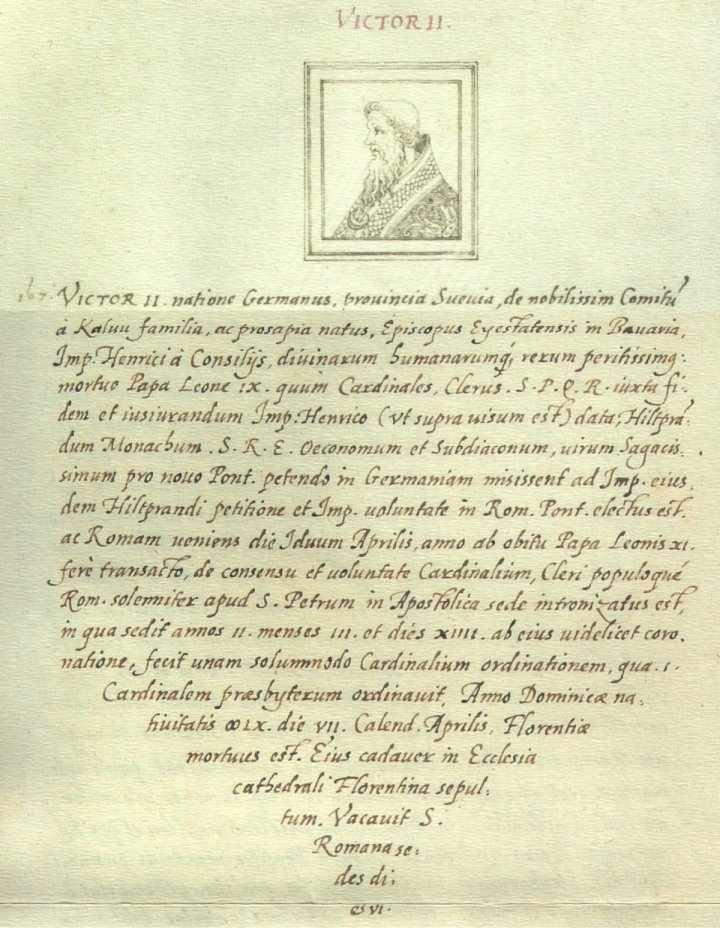 VICTOR II.
167
VICTOR II. natione Germanus, prouincia Sueuia, de nobilissim Comitũ
à Kaluu familia, ac prosapia natus, Episcopus Eyestatensis in Bauaria,
Imp. Henrici à Consilijs, diuinarum humanarumq́; rerum peritissimq:
mortuo Papa Leone IX. quum Cardinales, Clerus. S. P. Q. R. iuxta fi-
dem et iusiurandum Imp. Henrico (vt supra uisum est) data, Hiltprã-
dum Monachum. S. R. E. Oeconomum et Subdiaconum, uirum Sagacis-
simum pro nouo Pont. petendo in Germaniam misissent ad Imp. eius-
dem Hiltprandi petitione et Imp. uoluntate in Rom. Pont. electus est.
ac Romam ueniens die Iduum Aprilis, anno ab obitu Papa Leonis XI.
ferè transacto, de consensu et uoluntate Cardinalium, Cleri populoqué
Rom. solemniter apud S. Petrum in Apostolica sede intronizatus est,
in qua sedit annos II. menses III. et dies XIIII. ab eius uidelicet coro-
natione, fecit unam solummodo Cardinalium ordinationem, qua. I.
Cardinalem præsbyterum ordinauit, Anno Dominicæ na-
tiuitatis ↀLX. die VII. Calend. Aprilis, Florentiæ
mortuus est. Eius cadauer in Ecclesia
cathedrali Florentina sepul-
tum. Vacauit S.
Romana se-
des di-
es VI.